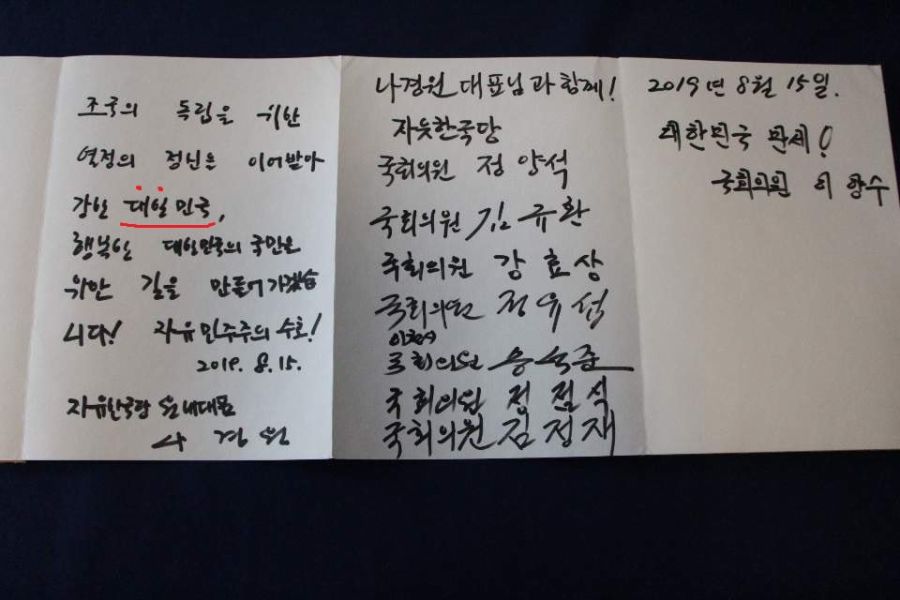 조국의 독립을 위한
열정의 정신을 이어받아
강한 대일민국,
행복한 대일민국의 국민을
위한 길을 만들어가겠습
니다! 자유민주주의 수호!
2019. 8. 15.
자유한국당 원내대표
나경원
나경원 대표님과 함께!
자유한국당
국회의원 정양석
국회의원 김규환
국회의원 강효상
국회의원 정유섭
국회의원 송석준
국회의원 정점식
국회의원 김정재
2019년 8월 15일.
대한민국 만세!
국회의원